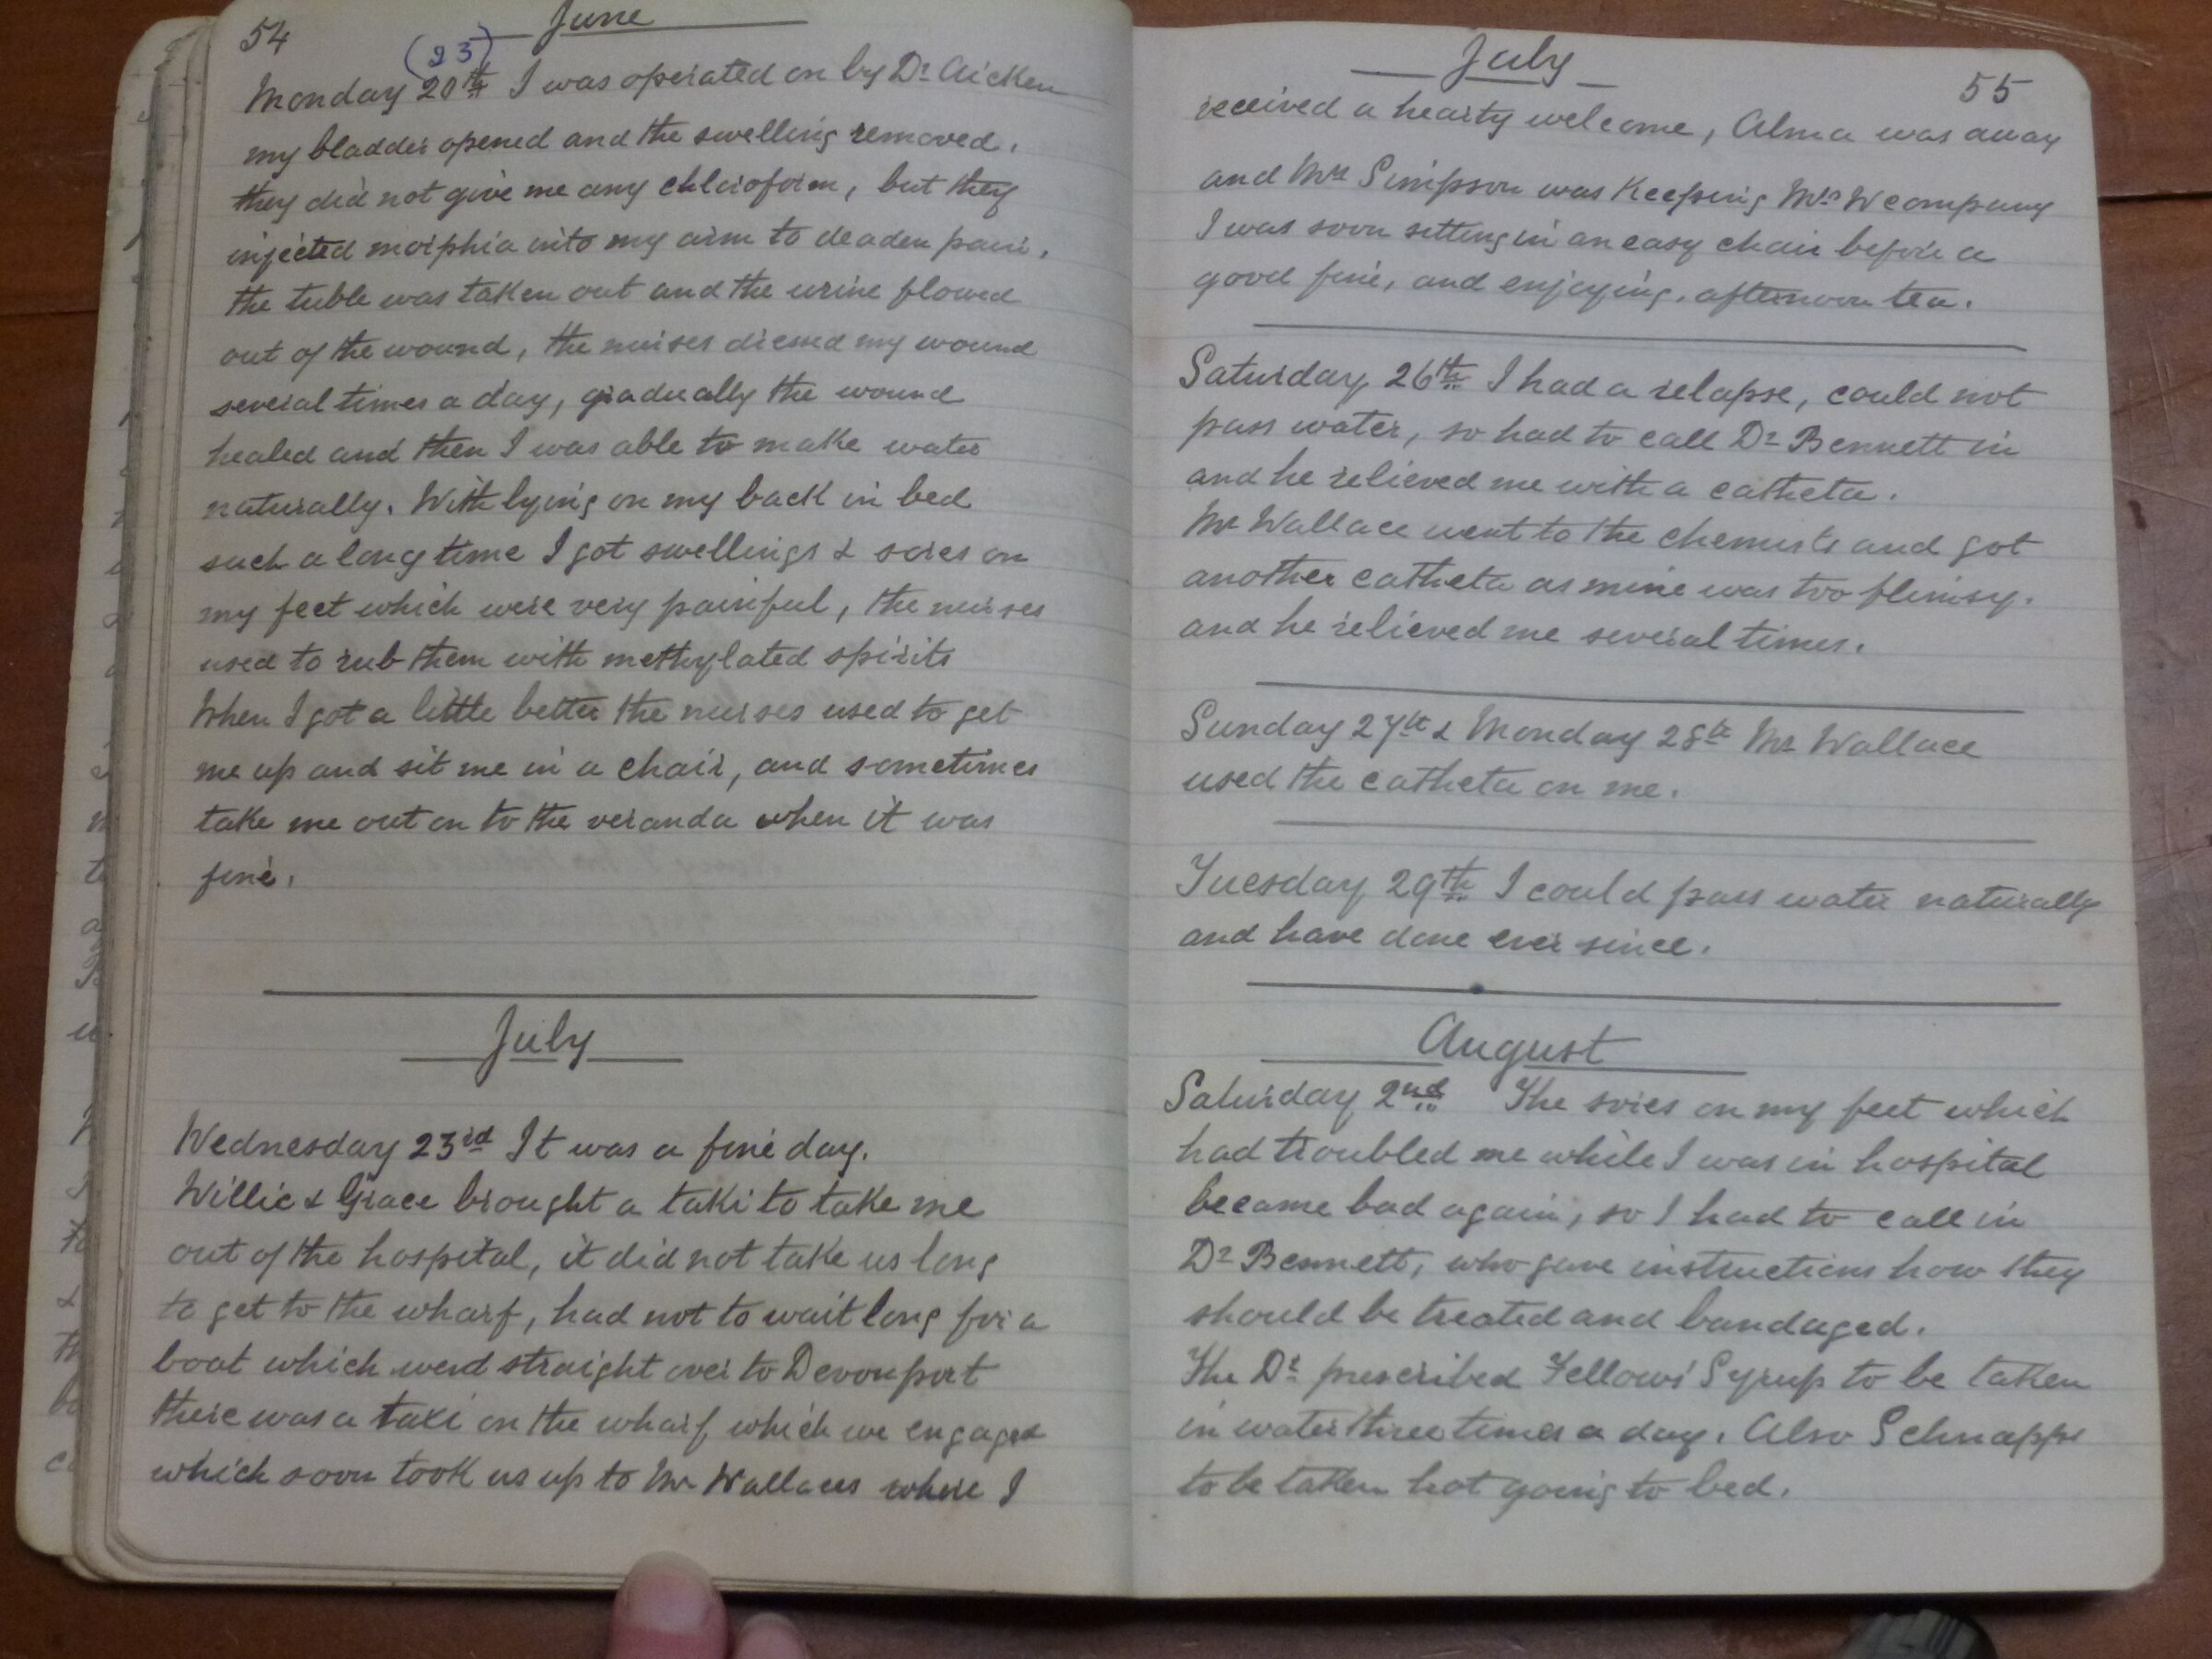 54
June
(23)
Monday 20th I was operated on by Dr Aicken
my bladder opened and the swelling removed.
they did not give me any chloroform, but they
injected morphia into my arm to deaden pain.
the tuble was taken out and the urine flowed
out of the wound, the nurses dressed my wound
several times a day, gradually the wound
healed and then I was able to make water
naturally. With lying on my back in bed
such a long time I got swellings & sores on
my feet which were very painful, the nurses
used to rub them with methylated spirits
When I got a little better the nurses used to get
me up and sit me in a chair, and sometimes
take me out on to the veranda when it was
fine.
July
Wednesday 23rd It was a fine day.
Willie & Grace brought a taki to take me
out of the hospital, it did not take us long
to get to the wharf, had not to wait long for a
boat which went straight over to Devonport
there was a taxi on the wharf which we engaged
which soon took us up to Mr Wallaces where I
July
55
received a hearty welcome, Alma was away
and Mrs Simpson was keeping Mrs W company
I was soon sitting in an easy chair before a
good fire, and enjoying. afternoon tea.
Saturday 26th I had a relapse, could not
pass water, so had to call Dr Bennett in
and he relieved me with a catheta.
Mr Wallace went to the chemists and got
another catheta as mine was too flimsy.
and he relieved me several times.
Sunday 27th & Monday 28th Mr Wallace
used the catheta on me.
Tuesday 29th I could pass water naturally
and have done ever since.
August
Saturday 2nd The sores on my feet which
had troubled me while I was in hospital
became bad again, so I had to call in
Dr Bennett, who gave instructions how they
should be treated and bandaged.
The Dr prescribed Fellows' Syrup to be taken
in water three times a day. Also Schnapps
to be taken hot going to bed.